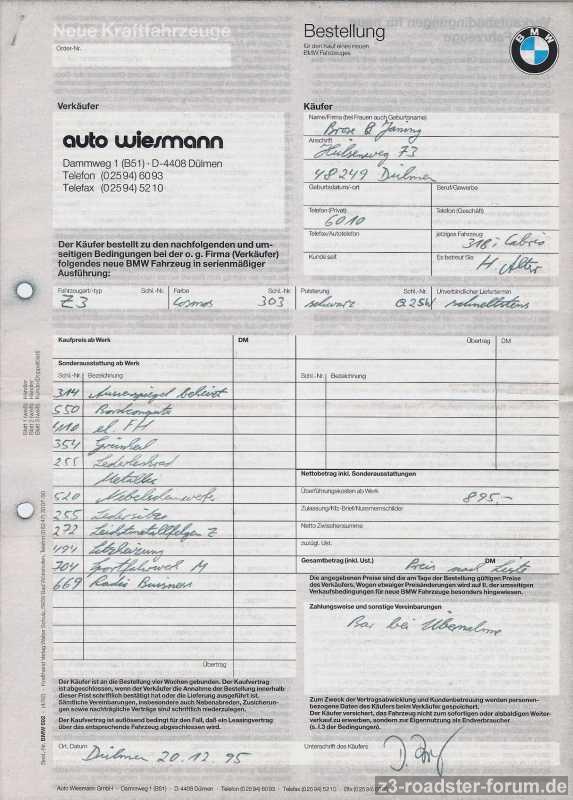 Neue Kraftfahrzeuge
Order-Nr.
Bestellung
für den Kauf eines neuen
BMW Fahrzeuges
BMW
Verkäufer
auto wiesmann
Dammweg 1 (B51) · D-4408 Dülmen
Telefon (02594) 6093
Telefax (02594) 5210
Der Käufer bestellt zu den nachfolgenden und um-
seitigen Bedingungen bei der o. g. Firma (Verkäufer)
folgendes neue BMW Fahrzeug in serienmäßiger
Ausführung:
Käufer
Name/Firma (bei Frauen auch Geburtsname)
Anschrift
Hülsenweg 73
48249 Dülmen
Geburtsdatum/-ort Beruf/Gewerbe
Telefon (Privat) Telefon (Geschäft)
6010
Telefax/Autotelefon jetziges Fahrzeug
318i Cabrio
Kunde seit Es betreut Sie
H. Alter
Fahrzeugart/-typ Schl.-Nr. Farbe Schl.-Nr. Polsterung Schl.-Nr. Unverbindlicher Liefertermin
Z3 Cosmos 303 schwarz schnellstens
Kaufpreis ab Werk DM
Sonderausstattung ab Werk
Schl.-Nr. Bezeichnung
314 Aussenspiegel beheizt
550 Bordcomputer
410 el. FH
354 Grünkeil
255 Lederlenkrad
Metallic
520 Nebelscheinwerfer
255 Ledersitze
272 Leichtmetallfelgen Z
494 Sitzheizung
704 Sportfahrwerk M
669 Radio Business
Übertrag
Übertrag DM
Schl.-Nr. Bezeichnung
Nettobetrag inkl. Sonderausstattungen
Überführungskosten ab Werk 895.-
Zulassung/Kfz-Brief/Nummernschilder
Netto Zwischensumme
zuzügl. Ust.
Gesamtbetrag (inkl. Ust.) DM
Preis nach Liste
Die angegebenen Preise sind die am Tage der Bestellung gültigen Preise
des Verkäufers. Wegen etwaiger Preisänderungen wird auf II. der umseitigen
Verkaufsbedingungen für neue BMW Fahrzeuge besonders hingewiesen.
Zahlungsweise und sonstige Vereinbarungen
Bar bei Übernahme
Der Käufer ist an die Bestellung vier Wochen gebunden. Der Kaufvertrag
ist abgeschlossen, wenn der Verkäufer die Annahme der Bestellung innerhalb
dieser Frist schriftlich bestätigt hat oder die Lieferung ausgeführt ist.
Sämtliche Vereinbarungen, insbesondere auch Nebenabreden, Zusicherun-
gen sowie nachträgliche Verträge sind schriftlich niederzulegen.
Der Kaufvertrag ist auflösend bedingt für den Fall, daß ein Leasingvertrag
über das entsprechende Fahrzeug abgeschlossen wird.
Zum Zweck der Vertragsabwicklung und Kundenbetreuung werden personen-
bezogene Daten des Käufers beim Verkäufer gespeichert.
Der Käufer versichert, das Fahrzeug nicht zum sofortigen oder alsbaldigen Weiter-
verkauf zu erwerben, sondern zur Eigennutzung als Endverbraucher
(s. I.3 der Bedingungen).
Ort, Datum
Dülmen 20.12.95
Unterschrift des Käufers
Auto Wiesmann GmbH · Dammweg 1 (B51) · D-4408 Dülmen · Telefon (02594) 6093
z3-roadster-forum.de